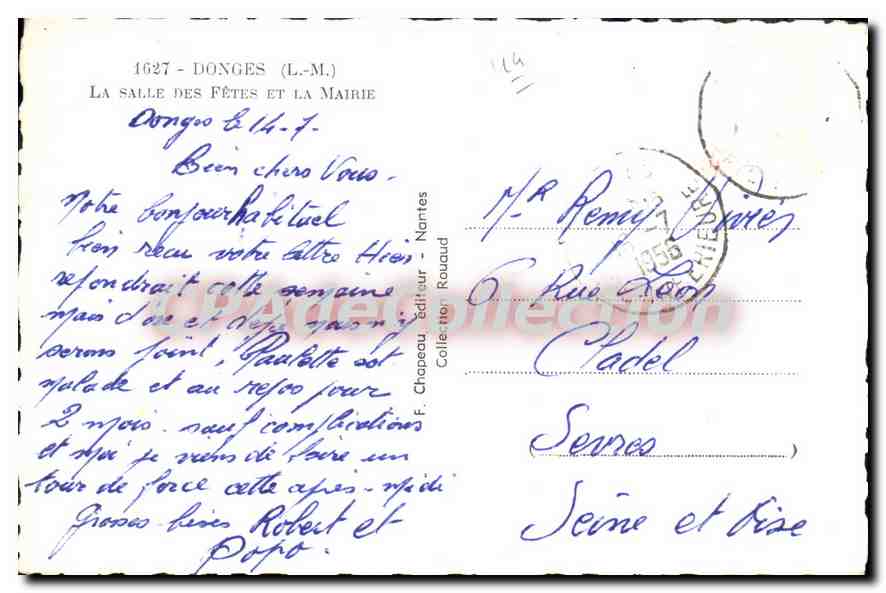 1627 - DONGES (L.-M.)
LA SALLE DES FÊTES ET LA MAIRIE
Donges le 14-7-
Bien chers Vous -
Notre bonjour habituel
bien reçu votre lettre Hier
refondrait cette semaine
mais d'ore et déjà nous n'y
serons point. Paulette est
malade et au repos pour
2 mois - sauf complications
et moi je viens de faire un
tour de force cette après-midi
Grosses bises Robert et
Popo.
F. Chapeau, éditeur - Nantes
Collection Rouaud
Mr Remy
6 Rue Léon
Cladel
Sevres
Seine et Oise
17
1956
ERIEURE
CPADeCollection